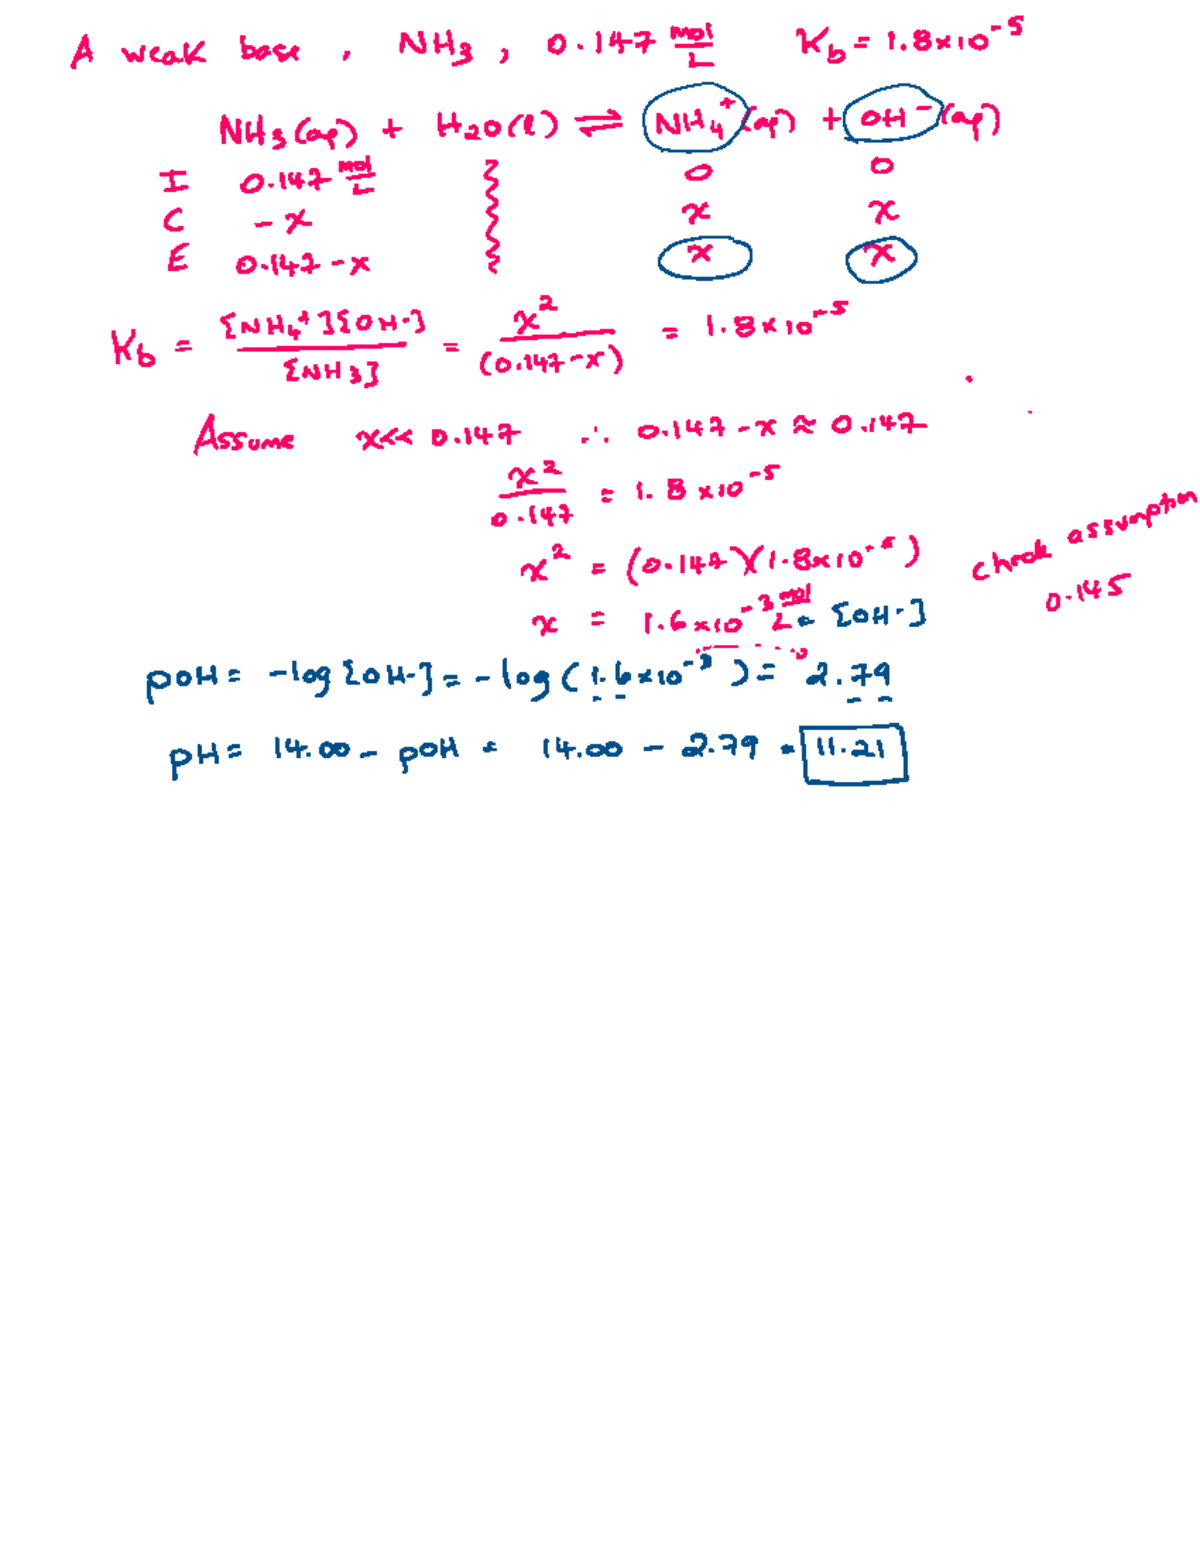 A weak base, NH₃, 0.147 mol/L  K_b = 1.8×10⁻⁵
NH₃(aq) + H₂O(l) ⇌ NH₄⁺(aq) + OH⁻(aq)
I  0.147 mol/L  0  0
C  -x  x  x
E  0.147-x  x  x
K_b = [NH₄⁺][OH-]/[NH₃] = x²/(0.147-x) = 1.8×10⁻⁵
Assume x<< 0.147 ∴ 0.147-x ≈ 0.147
x²/0.147 = 1.8×10⁻⁵
x² = (0.147)(1.8×10⁻⁵)
x = 1.6×10⁻³ mol/L = [OH-]
check assumption
0.145
pOH = -log[OH-] = -log(1.6×10⁻³) = 2.79
pH = 14.00 - pOH = 14.00 - 2.79 = 11.21